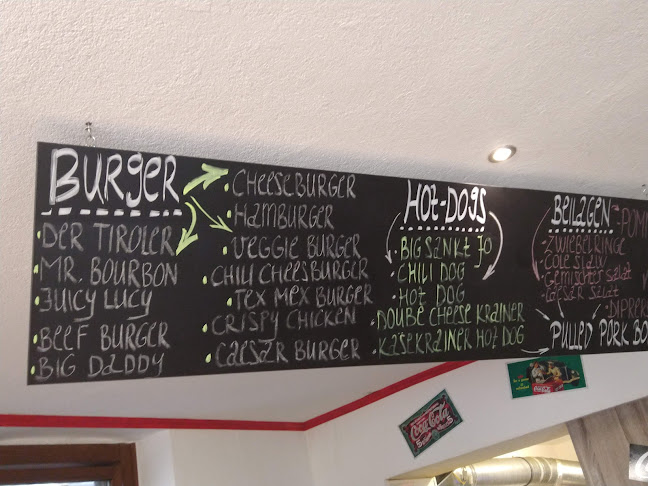 BURGER
DER TIROLER
MR. BOURBON
JUICY LUCY
BEEF BURGER
BIG DADDY
CHEESEBURGER
HAMBURGER
VEGGIE BURGER
CHILI CHEESBURGER
TEX MEX BURGER
CRISPY CHICKEN
CAESAR BURGER
HOT-DOGS
BIG SANKT JO
CHILI DOG
HOT DOG
DOUBE CHEESE KRAINER
KÄSEKRAINER HOT DOG
BEILAGEN
ZWIEBELRINGE
COLE SLAW
GEMISCHTER SALAT
CAESER SALAT
POMM
DIPPE
PULLED PORK BO
Coca-Cola
Coca-Cola